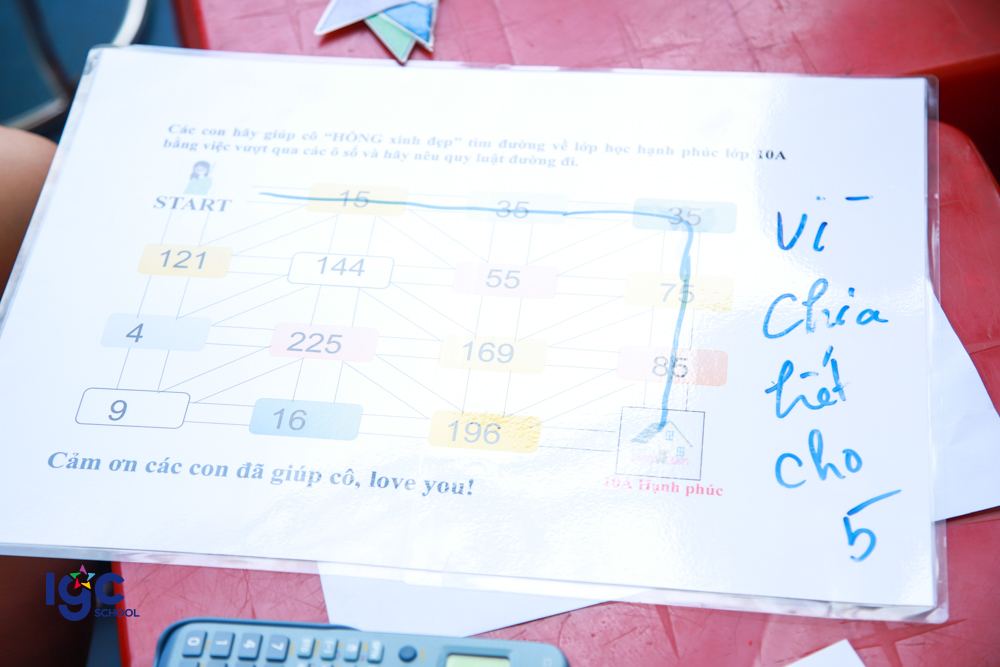 Các con hãy giúp cô "HỒNG xinh đẹp" tìm đường về lớp học hạnh phúc lớp 10A
bằng việc vượt qua các ô số và hãy nêu quy luật đường đi.
START
15 35 35
121 144 55 75
4 225 169 85
9 16 196
10A Hạnh phúc
Cảm ơn các con đã giúp cô, love you!
Vì
chia
hết
cho
5
IGC
SCHOOL
0 1 4 7